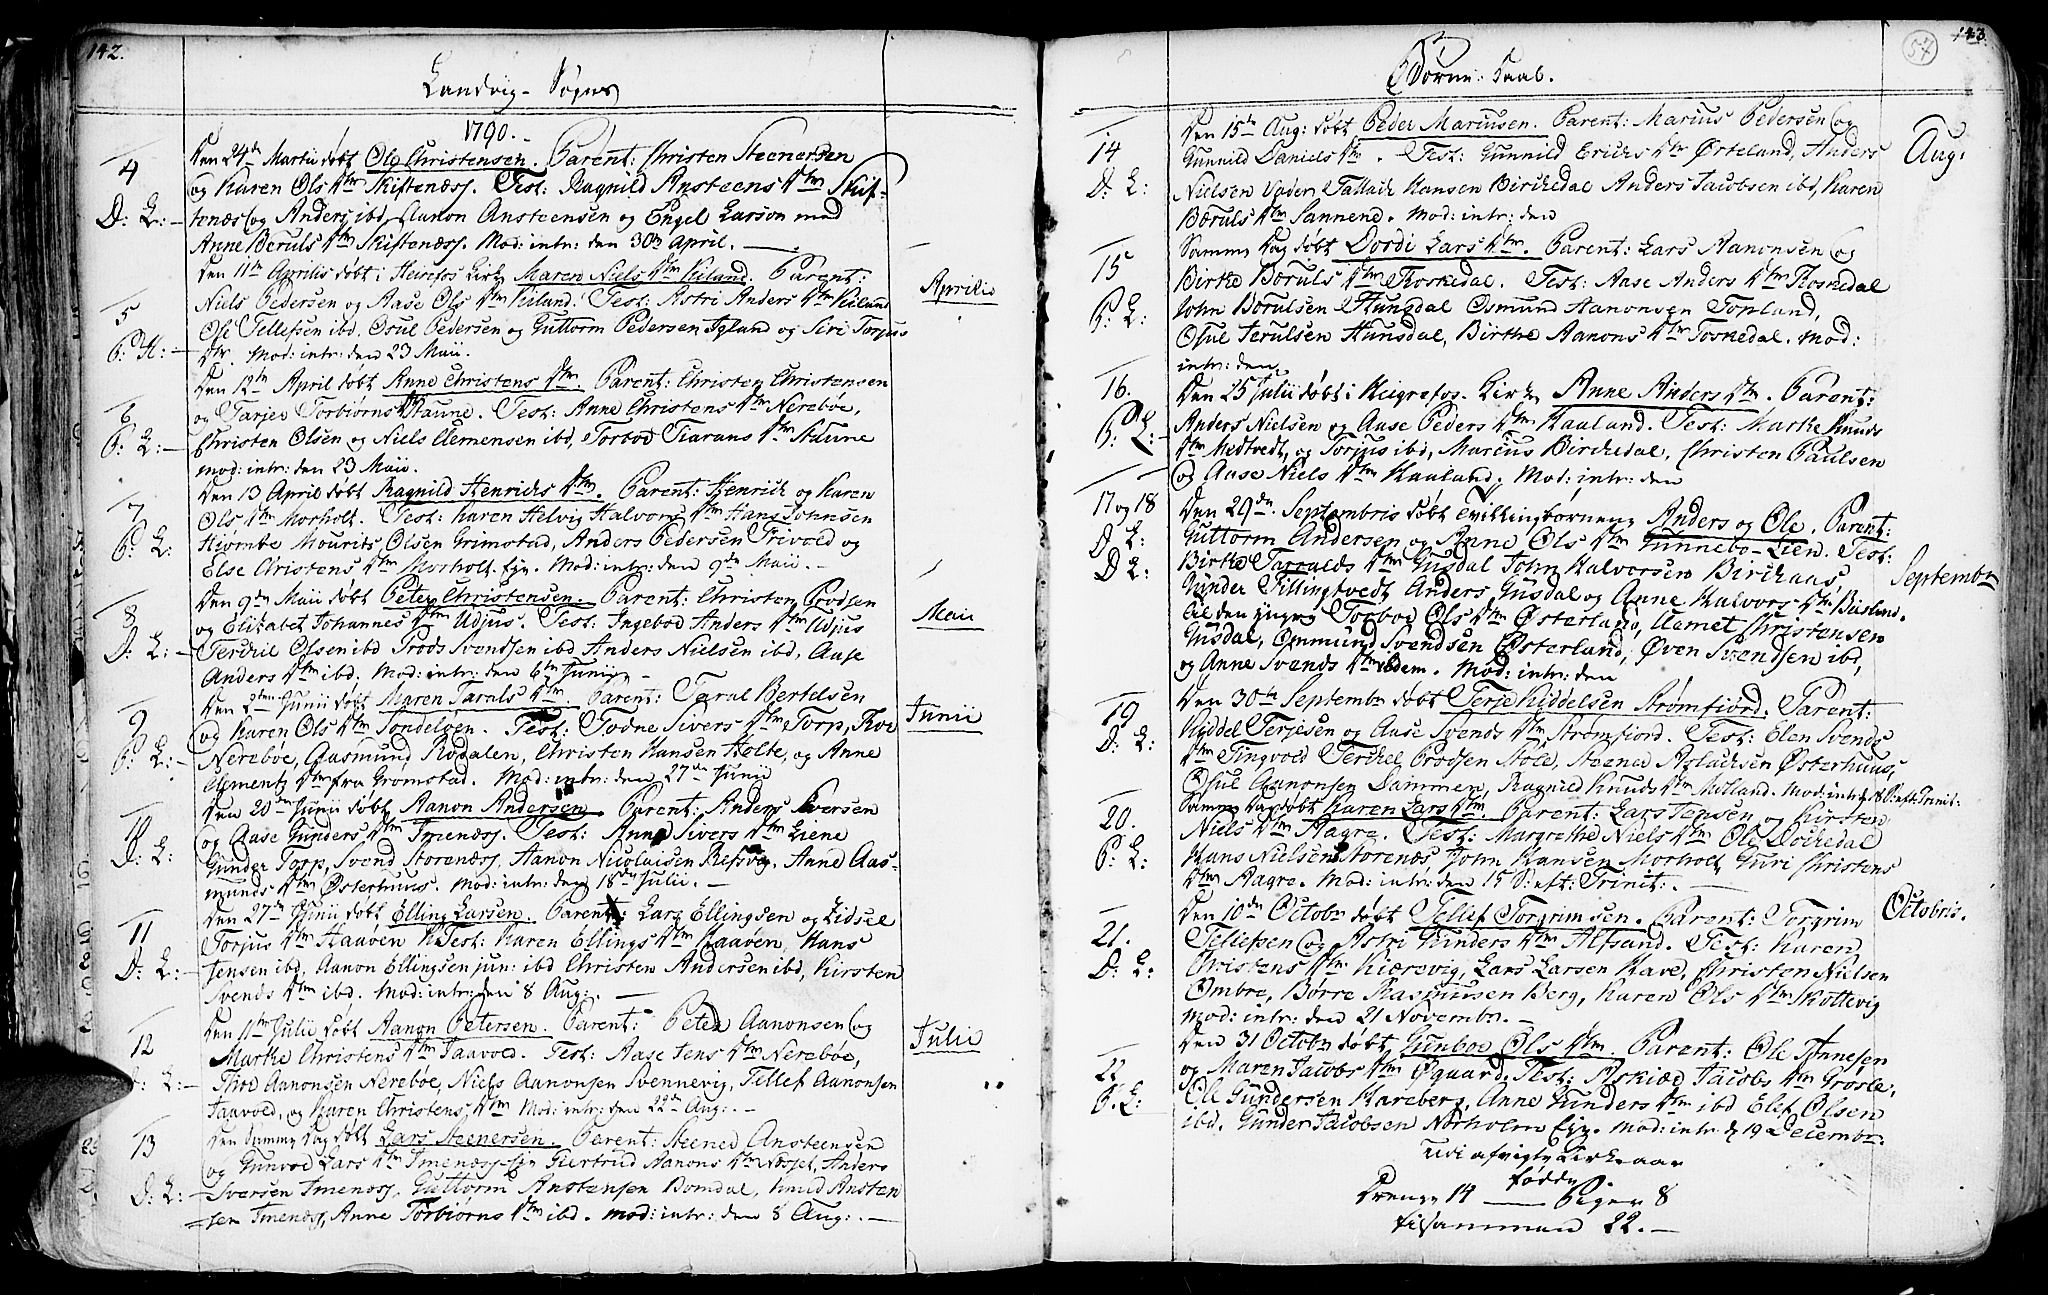 142.
Landvig Sogns
1790.
4
Den 24de Martii døbt Ole Christensen. Parent: Christen Steenersen
og Karen Ols Dtr Skiftenæss. Test: Ragnild Ansteens Dtr Skif-
D: L: tenæs og Anders ibd, Aanon Ansteensen og Engel Larson med
Anne Beruls Dtr Skiftenæss. Mod: intr: den 30th April.
Den 11te Aprilis døbt i Heirefos Kirk Maren Niels Dtr Kiland. Parent:
Aprilis
5
Niels Pedersen og Aase Ols Dtr Kiland. Test: Astri Anders Dtr Kiland
Ose Tellefsen ibd. Osul Pedersen og Guttorm Pedersen Igland og Siri Torjus
P: H: Dtr. Mod: intr: den 23 Maii.
Den 12te April døbt Anne Christens Dtr. Parent: Christen Christensen
6
og Tarjer Torbiørns Staune. Test: Anne Christens Dtr Nerebøe,
P: L: Christen Olsen og Niels Clemensen ibd, Torbor Tiarans Dtr
mod: intr: den 23 Maii.
Den 13 April døbt Ragnild Henrichs Dtr. Parent: Henrich og Karen
7
Ols Dtr Morholt. Test: Karen Helvig Halvors Dtr Hans Johnsen
P: L: Hiombe Mourits Olsen Grimstad, Anders Pedersen Trivold og
Else Christens Dtr Morholt Eje. Mod: intr: den 9de Maii.
Den 9de Maii døbt Peter Christensen. Parent: Christen Brodsen
Maii
8
og Elizabet Johannes Dtr Udjus. Test: Ingebor Anders Dtr Udjus
D: L: Terchil Olsen ibd Brods Svendsen ibd Anders Nielsen ibd, Aase
Anders Dtr ibd. Mod: intr: den 6te Junii.
Den 2den Junii døbt Maren Taralls Dtr. Parent: Taral Bertelsen
Junii
9
og Karen Ols Dtr Tondeløen. Test: Todne Sivers Dtr Torp, Thor
P: L: Nerebøe, Aasmund Rødalen, Christen Hansen Holte, og Anne
Clementz Dtr fra Gromstad. Mod: intr: den 27de Junii
Den 20de Junii døbt Aanon Andersen. Parent: Anders Iversen
10
og Aase Gunders Dtr Imenæss. Test: Anne Sivers Dtr Liene
D: L: Gunder Torp, Svend Storenæss, Aanon Nicolaisen Refsvog, Anne Aas-
munds Dtr Østerhuus. Mod: intr: den 18de Julii.
Den 27de Junii døbt Elling Larsen. Parent: Lars Ellingsen og Lidsel
11
Torjus Dtr Haaøen Test: Karen Ellings Dtr Haaøen, Hans
D: L: Jensen ibd, Aanon Ellingsen jun: ibd Christen Andersen ibd, Kirsten
Svends Dtr ibd. Mod: intr: den 8 Aug:.
Den 11te Julii døbt Aanon Petersen. Parent: Peter Aanonsen og
Julii
12
Marthe Christens Dtr Taavold. Test: Aase Jens Dtr Nerebøe,
D: L: Thor Aanonsen Nerebøe, Niels Aanonsen Svennevig, Tellef Aanonsen
Taavold, og Karen Christens Dtr Mod: intr: den 22de Aug:.
Den Samme Dag døbt Lars Steenersen. Parent: Steener Ansteensen
13
og Gunvor Lars Dtr Imenæss Giertrud Aanons Dtr Næsset, Anders
D: L: Iversen Imenæss, Guttorm Anstensen Bomdal, Knud Ansten
sen Imenæss, Anne Torbiørns Dtr ibd. Mod: intr: den 8 Aug:.
143
57
Børne: Daab.
Den 15de Aug: døbt Peder Mariusen. Parent: Marius Pedersen og
Aug:
14
Gunnild Daniels Dtr. Test: Gunnild Erichs Dtr Østeland, Anders
D: L: Nielsen Tallach Hansen Birchedal Anders Jacobsen ibd, Karen
Bæruls Dtr Sannene. Mod: intr: den
Samme Dag døbt Dordi Lars Dtr. Parent: Lars Aanonsen og
15
Birthe Bæruls Dtr Thoskedal. Test: Aase Anders Dtr Thoskedal
P: L: John Børulsen Hungdal Osmund Aanonsen Topland,
Osul Jerulsen Hunsdal, Birthe Aanons Dtr Toskedal. Mod:
intr: den
16.
Den 25 Julii døbt i Heigrefos Kirk Anne Anders Dtr. Parent:
P: L: Anders Nielsen og Aase Peders Dtr Haaland. Test: Marthe Knuds
Dtr Medtvedt, og Torjus ibd, Marcus Birchedal, Christen Paulsen
og Aase Niels Dtr Haaland. Mod: intr: den
17 og 18
Den 29de Septembris døbt Tvillingbørnene Anders og Ole. Parent:
D: L: Guttorm Andersen og Anne Ols Dtr Gunnebo-Lien. Test:
D L: Birthe Tarralds Dtr Gusdal John Halvorsen Birchaas
Septembr
Gunder Tillingtvedt Anders Gusdal og Anne Halvors Dtr Beisland.
Til den yngre Torbor Ols Dtr Østerland, Aamet Christensen
Gusdal, Ommund Svendsen Østerland, Øven Svendsen ibd,
og Anne Svends Dtr ibdem. Mod: intr: den
19
Den 30te Septembr døbt Terje Kiddelsen Strømfiord. Parent:
D: L: Kiddel Terjesen og Aase Svends Dtr Strømfiord. Test: Elen Svends
Dtr Tingvold Terchel Brodsen Stole, Steener Aslachsen Østerhuus,
Osul Aanonsen Dammen, Ragnild Knuds Dtr Molland. Mod: intr: d 18 S: eft: Trinit:
20.
Samme Dag døbt Karen Lars Dtr. Parent: Lars Jensen og Kirsten
Niels Dtr Aagre. Test: Margrethe Niels Dtr Ole Dochedal
P: L: Hans Nielsen Storenæs John Hansen Morholt Guri Christens
Dtr Aagre. Mod: intr: den 15 S: eft: Trinit:.
Den 10de Octobr døbt Tellef Torgrimsen. Parent: Torgrim
Octobris.
21.
Tellefsen og Astri Gunders Dtr Alfsand. Test: Karen
D: L: Christens Dtr Kiærevig, Lars Larsen Have, Christen Nielsen
Ombre, Børre Rasmusen Berg, Karen Ols Dtr Skottevig
Mod: intr: den 21 Novembr.
Den 31 Octobr døbt Gunbor Ols Dtr. Parent: Ole Tønnesen
22
og Maren Jacobs Dtr Øgaard. Test: Askiær Jacobs Dtr Grosle,
P: L: Ole Gundersen Hareberg, Anne Gunders Dtr ibd Elef Olsen
ibd. Gunder Jacobsen Norholm Eje. Mod: intr d 19 Decembr.
Udi afvigte Kirkeaar
fødde.
Drenge 14 — Piger 8
tilsammen 22.